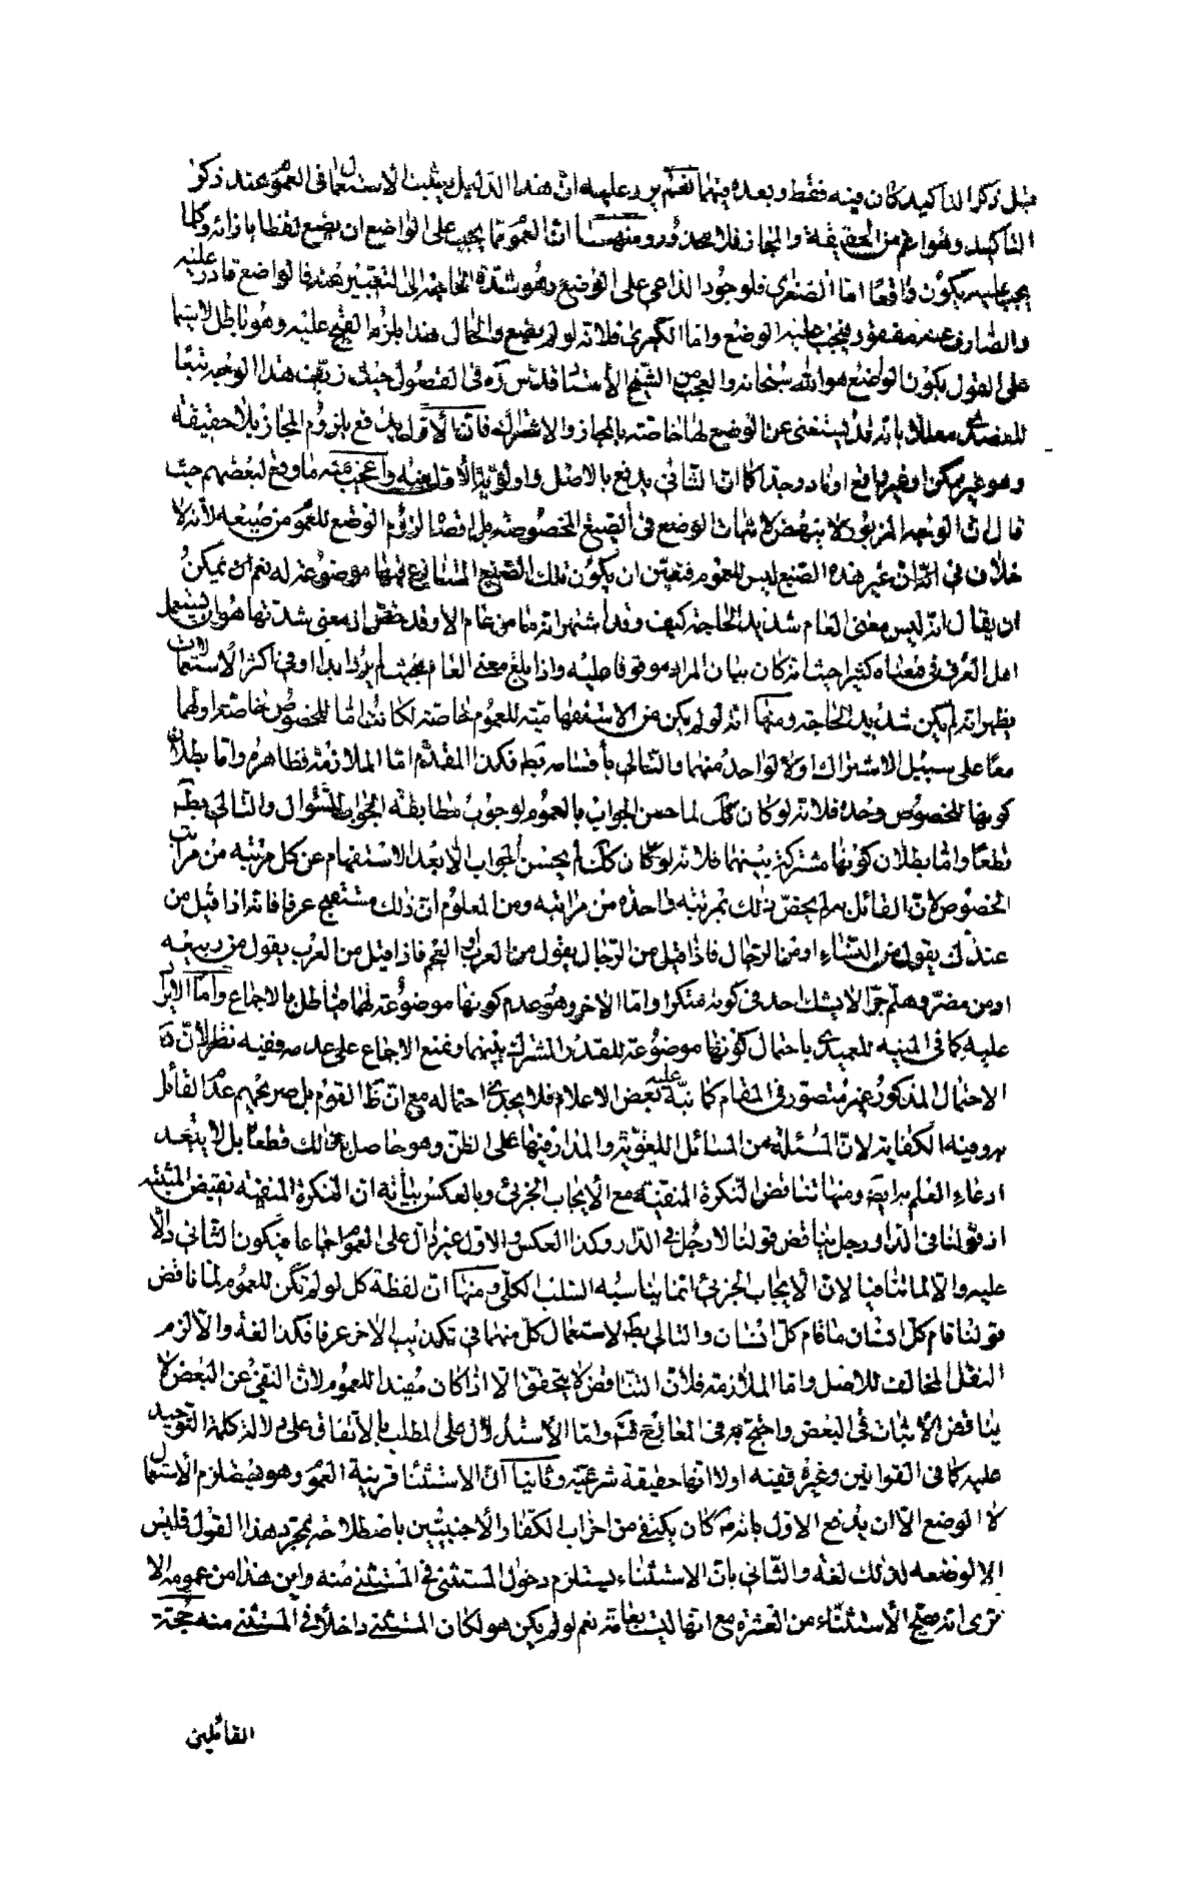 قبل ذكر التاكيد كان فيه فقط وبعده فيهما نعم يرد عليه ان هذا الدليل يثبت الاستعمال فى العموم عند ذكر
التاكيد وهو اعم من الحقيقة والمجاز فلا محذور ومنها ان العموم مما يجب على الواضع ان يضع لفظا بازائه وكلما
يجب عليه يكون واقعا اما الصغرى فلوجود الداعى على الوضع وهو شدة الحاجة الى التعبير عنه فالواضع قادر عليه
والصارف عنه مفقود فيجب عليه الوضع واما الكبرى فلانه لو لم يضع والحال هذا يلزم القبح عليه وهو باطل لا سيما
على القول بكون الواضع هو الله سبحانه والعجب من الشيخ الاستاد قدس سره فى الفصول حيث زيف هذا الوجه تبعا
للعضدى معللا بانه قد يستغنى عن الوضع لها خاصة بالمجاز والاشتراك فان الاول يدفع بلزوم المجاز بلا حقيقة
وهو غير ممكن او غير واقع او نادر جدا كما ان الثانى يدفع بالاصل واولوية الاول عنه واعجب منه ما وقع لبعضهم حيث
قال ان الوجه المزبور لا ينهض لاثبات الوضع فى الصيغ المخصوصة بل اقصاه لزوم الوضع للعموم من صيغه لانه لا
خلاف فى ان غير هذه الصيغ ليس للعموم فتعين ان يكون تلك الصيغ المتنازع فيها موضوعة له نعم ان يمكن
ان يقال انه ليس معنى العام شديد الحاجة كيف وقد اشتهر انه ما من عام الا وقد خص اذ معنى شدتها هو ان يستعمل
اهل العرف فى معناه كثيرا بحيث انه كان بيان المراد موقوفا عليه واذا بلغ معنى العام بحيث لم يرد ابدا او فى اكثر الاستعمالات
يظهر انه لم يكن شديد الحاجة ومنها انه لو لم يكن من الاستفهامية للعموم خاصة لكانت اما للخصوص خاصة او لهما
معا على سبيل الاشتراك او لا لواحد منهما والتالى باقسامه بط فكذا المقدم اما الملازمة فظاهرة واما بطلان
كونها للخصوص وحده فلانه لو كان كك لما حسن الجواب بالعموم لوجوب مطابقة الجواب للسؤال والتالى بط
قطعا واما بطلان كونها مشتركة بينهما فلانه لو كان كك لم يحسن الجواب الا بعد الاستفهام عن كل مرتبة من مراتب
الخصوص لان القائل به لم يخص ذلك بمرتبة واحدة من مراتبه ومن المعلوم ان ذلك مستهجن عرفا فانه اذا قيل من
عندك يقول من النساء او من الرجال فاذا قيل من الرجال يقول من العرب او العجم فاذا قيل من العرب يقول من ربيعة
او من مضر وهلم جرا لا يشك احد فى كونه منكرا واما الاخر وهو عدم كونها موضوعة لهما فباطل بالاجماع واما الايراد
عليه كما فى المنية للعميدى باحتمال كونها موضوعة للقدر المشترك بينهما ومنع الاجماع على عدمه ففيه نظر لان
الاحتمال المذكور غير متصور فى المقام كما نبه عليه بعض الاعلام فلا يجدى احتماله مع ان ظ القوم بل صريحهم عدم القائل
به وفيه الكفاية لان المسئلة من المسائل اللغوية والمدار فيها على الظن وهو حاصل بذلك قطعا بل لا يبعد
ادعاء العلم به ايضه ومنها تناقض النكرة المنفية مع الايجاب الجزئى وبالعكس بيانه ان النكرة المنفية نقيض المثبتة
اذ قولنا فى الدار رجل يناقض قولنا لا رجل فى الدار وكذا العكس والاول غير دال على العموم اجماعا فيكون الثانى دالا
عليه والا لما تنافيا لان الايجاب الجزئى انما يناسبه السلب الكلى ومنها ان لفظة كل لو لم تكن للعموم لما ناقض
قولنا قام كل انسان ما قام كل انسان والتالى بط لاستعمال كل منهما فى تكذيب الاخر عرفا فكذا لغة والا لزم
النقل المخالف للاصل واما الملازمة فلان التناقض لا يتحقق الا اذا كان مفيدا للعموم لان النفى عن البعض لا
يناقض الاثبات فى البعض واحتج به فى المعارج فتم واما الاستدلال على المطلب بالاتفاق على دلالة كلمة التوحيد
عليه كما فى القوانين وغيره ففيه اولا انها حقيقة شرعية وثانيا ان الاستثنا قرينة العموم وهو يستلزم الاستعمال
لا الوضع الا ان يدفع الاول بانه كان يكتفى من اعراب الكفار والاجنبيين باصطلاحه بمجرد هذا القول فليس
الا لوضعه لذلك لغة والثانى بان الاستثناء يستلزم دخول المستثنى فى المستثنى منه واين هذا من عمومه الا
ترى انه صح الاستثناء من العشرة مع انها ليست بعامة نعم لو لم يكن هو لكان المستثنى داخلا فى المستثنى منه حجة
القائلين